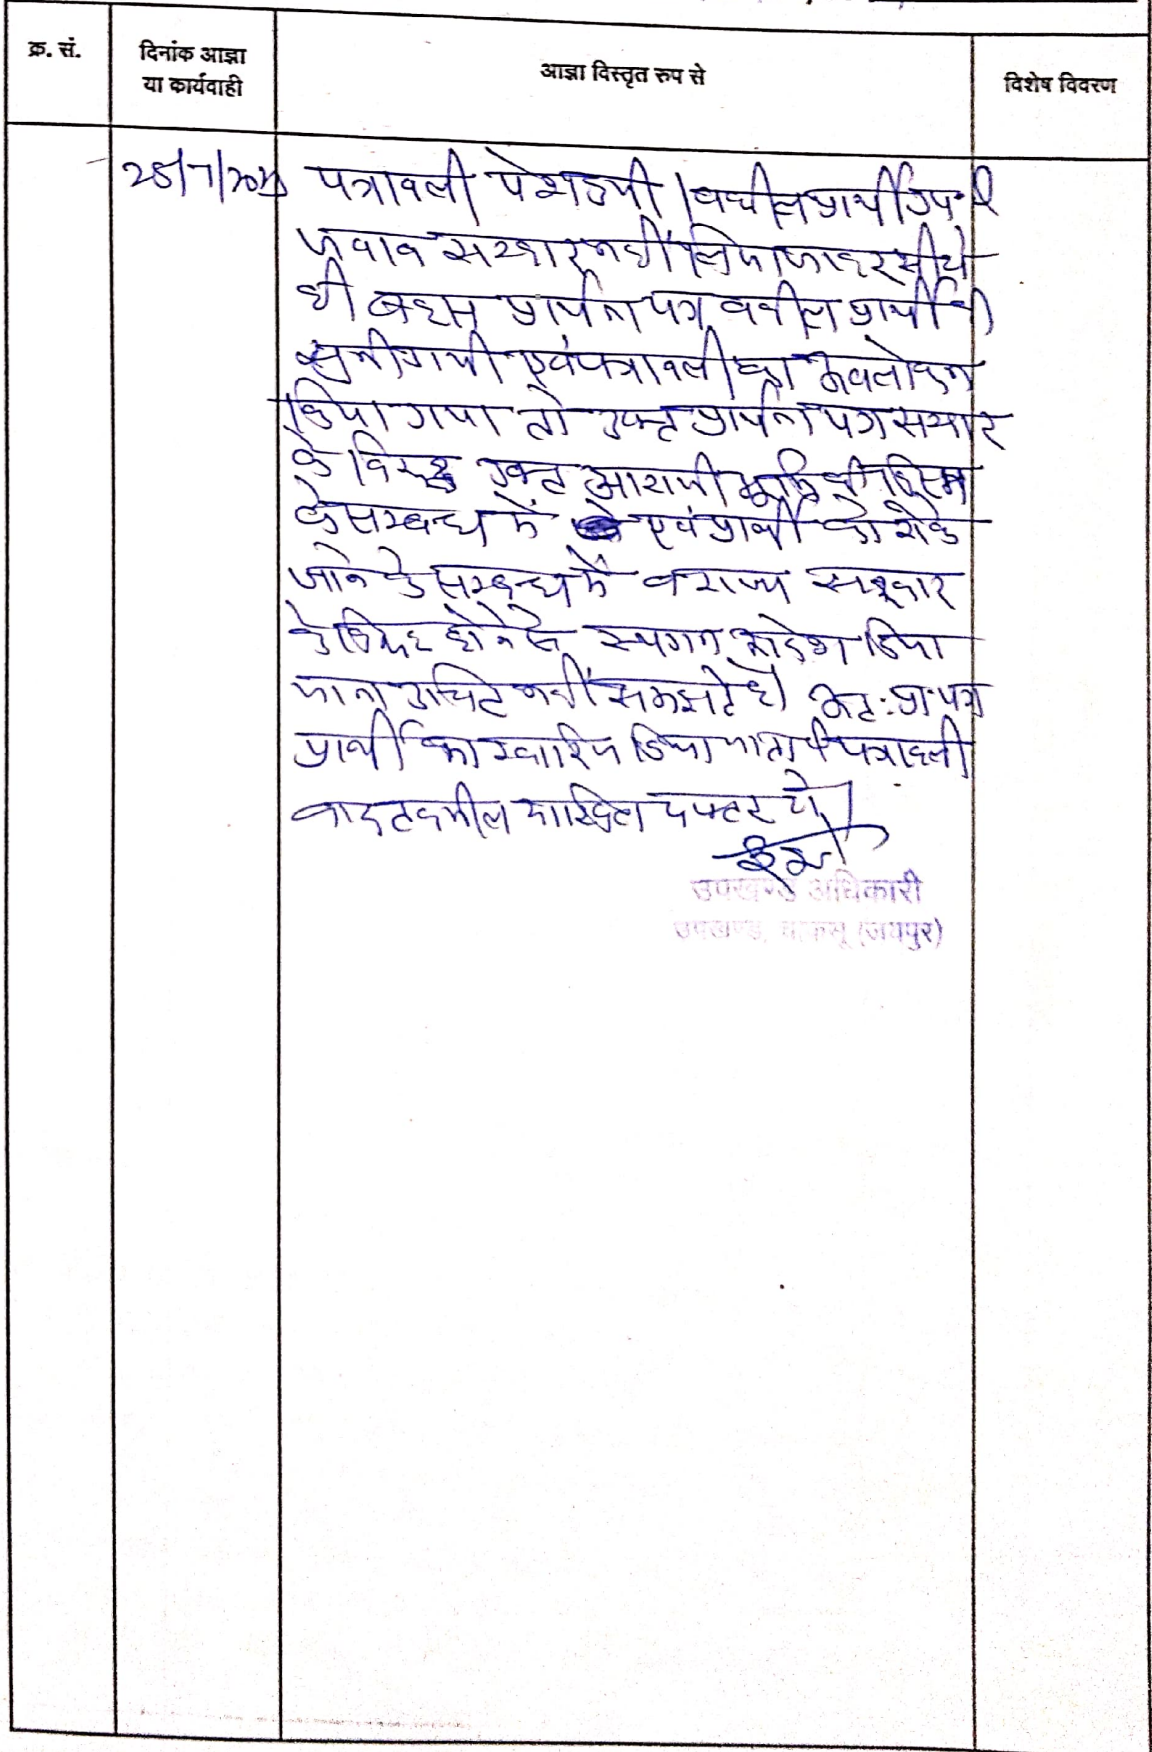 क्र. सं.
दिनांक आज्ञा
या कार्यवाही
आज्ञा विस्तृत रुप से
विशेष विवरण
पत्रावली पेश हुयी । वकील प्रार्थी उप.
जवाब सरकार नहीं
की बहस प्रार्थना पत्र वकील प्रार्थी की
सुनी गयी एवं पत्रावली का अवलोकन
किया गया तो उक्त प्रार्थना पत्र सरकार
के विरुद्ध उक्त आराजी भूमि की किस्म
के सम्बन्ध में एवं प्रार्थी को रोके
जाने के सम्बन्ध में व राज्य सरकार
के विरुद्ध होने से स्थगन आदेश दिया
जाना उचित नहीं समझते है। अतः प्रा. पत्र
प्रार्थी का खारिज किया जाता है पत्रावली
बाद तकमील दाखिल दफ्तर हो।
उपखण्ड अधिकारी
उपखण्ड, चाकसू (जयपुर)